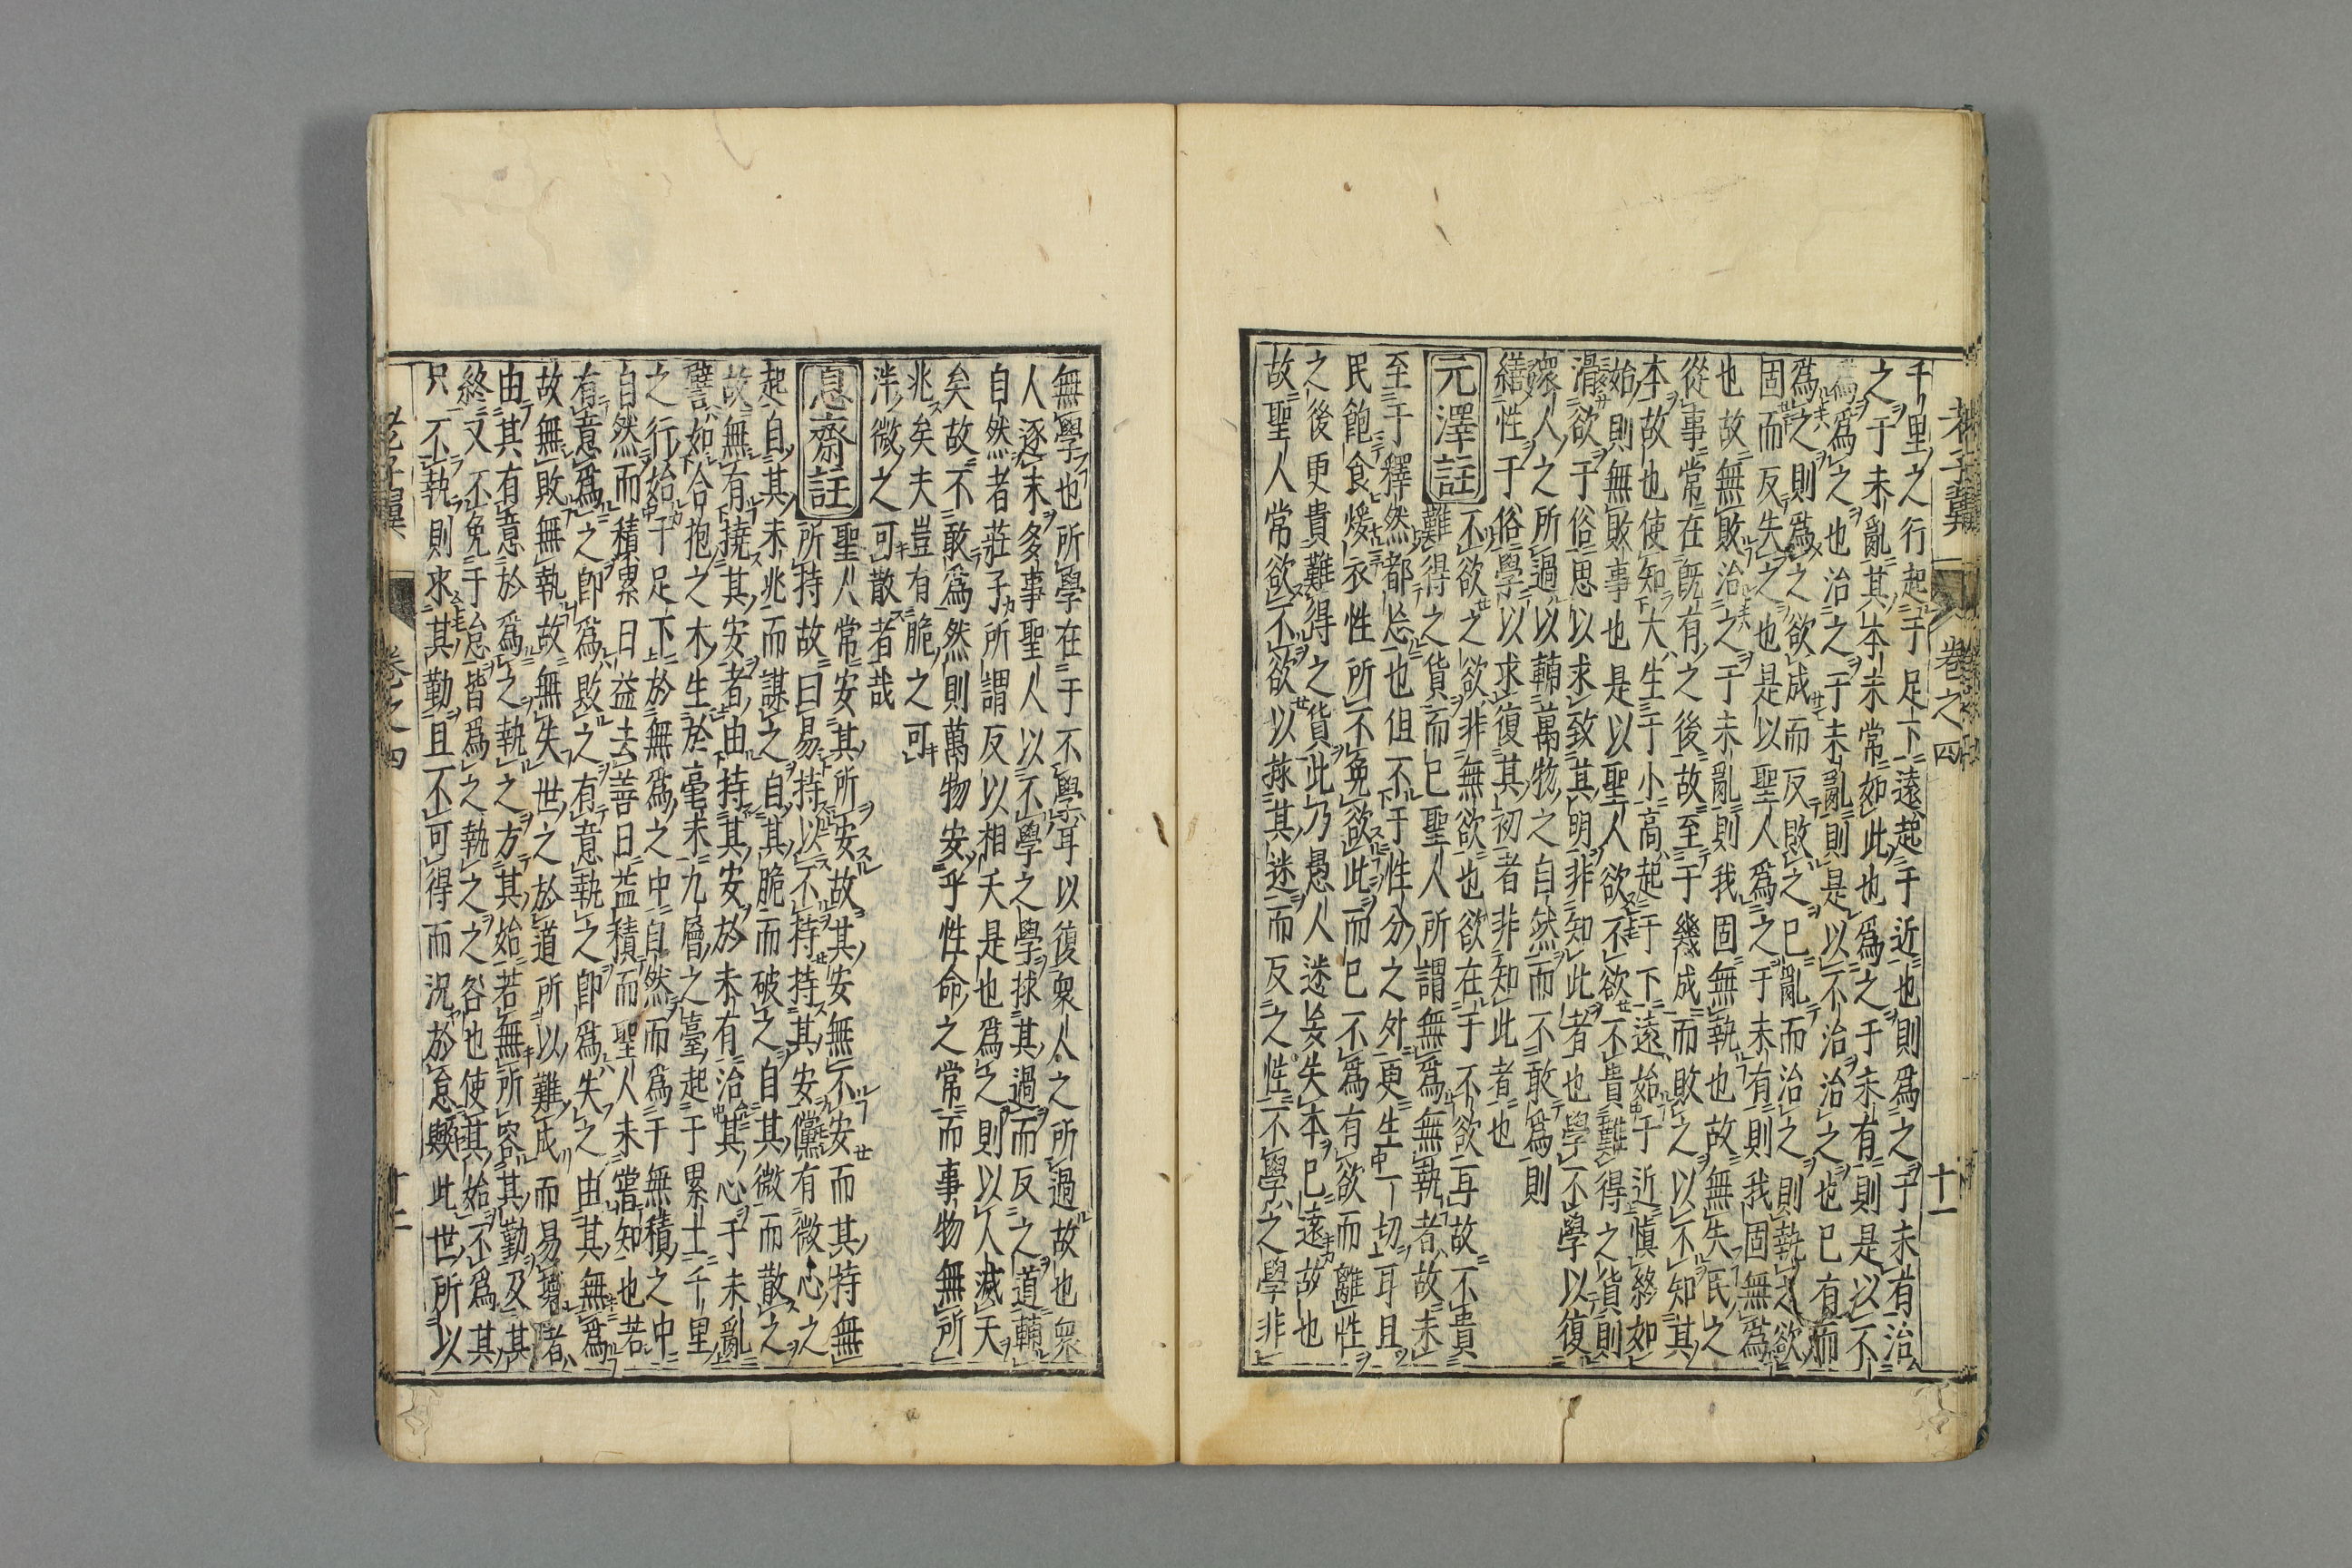 老子翼 卷之四 十一
千里之行起于足下遠起于近也則爲之于未有治
之于未亂其本未常如此也爲之于未有則是以不
爲爲之也治之于未亂則是以不治治之也已有而
爲之則爲之欲成而反敗之已亂而治之則執之欲
固而反失之也是以聖人爲之于未有則我固無爲
也故無敗治之于未亂則我固無執也故無失民之
從事常在既有之後故至于幾成而敗之以不知其
本故也使知大生于小高起于下遠始于近愼終如
始則無敗事也是以聖人欲不欲不貴難得之貨則
滑欲于俗思以求致其明非知此者也學不學以復
衆人之所過以輔萬物之自然而不敢爲則
繕性于俗學以求復其初者非知此者也
元澤註 不欲之欲非無欲也欲在于不欲耳故不貴
難得之貨而已聖人所謂無爲無執者故未
至于釋然都忘也但不于性分之外更生一切耳且
民飽食煖衣性所不免欲此而已不爲有欲而離性
之後更貴難得之貨此乃愚人迷妄失本已遠故也
故聖人常欲不欲以捄其迷而反之性不學之學非
無學也所學在于不學耳以復衆人之所過故也衆
人逐末多事聖人以不學之學捄其過而反之道輔
自然者莊子所謂反以相天是也爲之則以人滅天
矣故不敢爲然則萬物安乎性命之常而事物無所
兆矣夫豈有脆之可
泮微之可散者哉
息齋註 聖人常安其所安故其安無不安而其持無
所持故曰易持以不持持其安儻有微心之
起自其未兆而謀之自其脆而破之自其微而散之
故無有撓其安者由持其安於未有治其心于未亂
譬如合抱之木生於毫末九層之臺起于累土千里
之行始于足下於無爲之中自然而爲于無積之中
自然而積累日益去善日益積而聖人未嘗知也若
有意爲之卽爲敗之有意執之卽爲失之由其無爲
故無敗無執故無失世之於道所以難成而易壞者
由其有意於爲之執之方其始若無所容其勤及其
終又不免于怠皆爲之執之之咎也使其始不爲其
只不執則求其勤且不可得而況於怠歟此世所以
老子翼 卷之四 十二